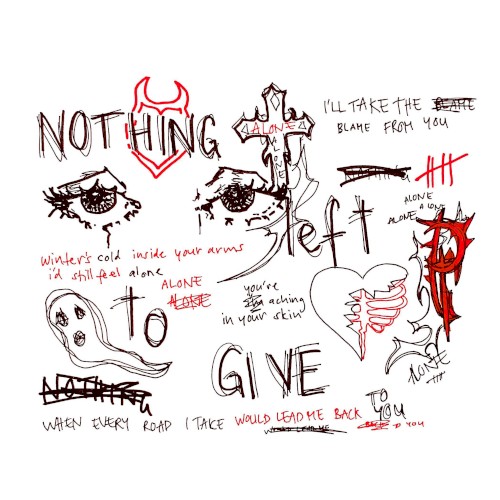 NOTHING
ALONE
ALONE
I'LL TAKE THE BLAME
BLAME FROM YOU
left
ALONE
ALONE
ALONE
winter's cold inside your arms
i'd still feel alone
ALONE
to
you're
aching
in your skin
GIVE
ALONE
NOTHING
WHEN EVERY ROAD I TAKE WOULD LEAD ME BACK TO
YOU
WOULD LEAD ME
TO YOU